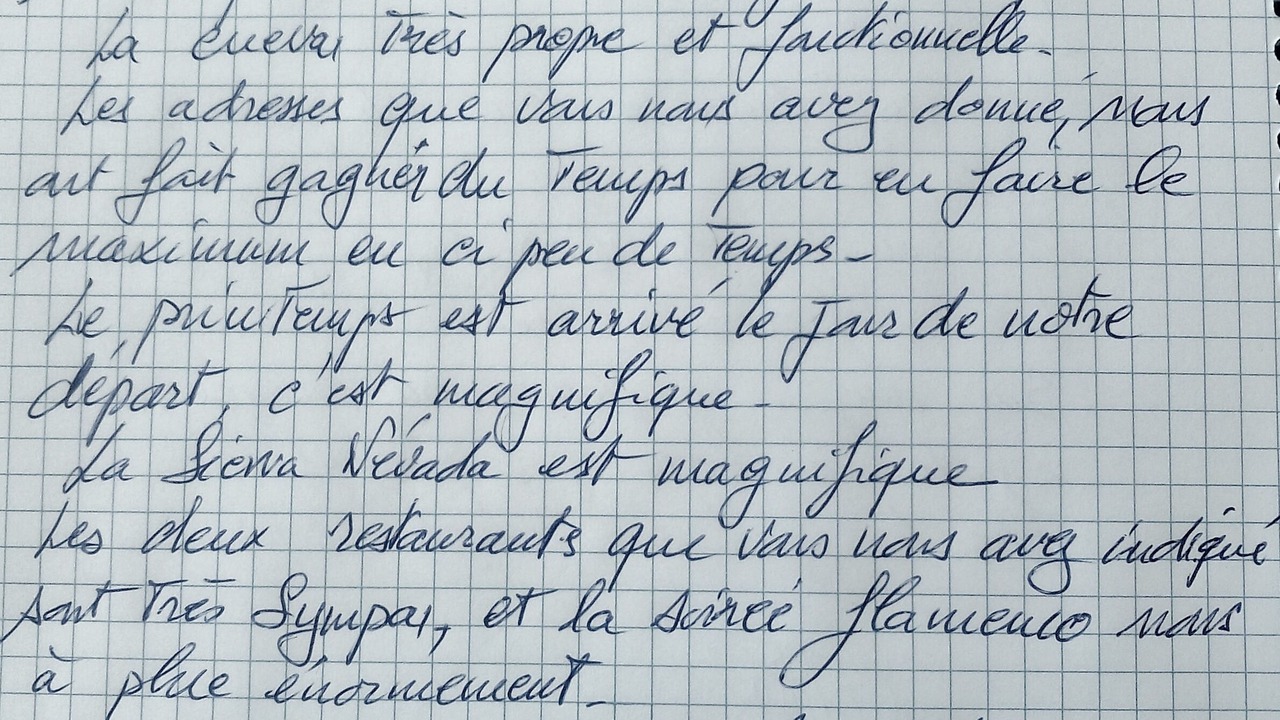 La cueva, Très propre et fonctionnelle.
Les adresses que vous nous avez donné, nous
ont fait gagner du Temps pour en faire le
maximum en ci peu de Temps.
Le prinTemps est arrivé le Jour de notre
départ, c'est magnifique.
La Sierra Névada est magnifique
Les deux restaurants que vous nous avez indiqué
sont Très Sympas, et la soirée flamenco nous
à plue énormement.